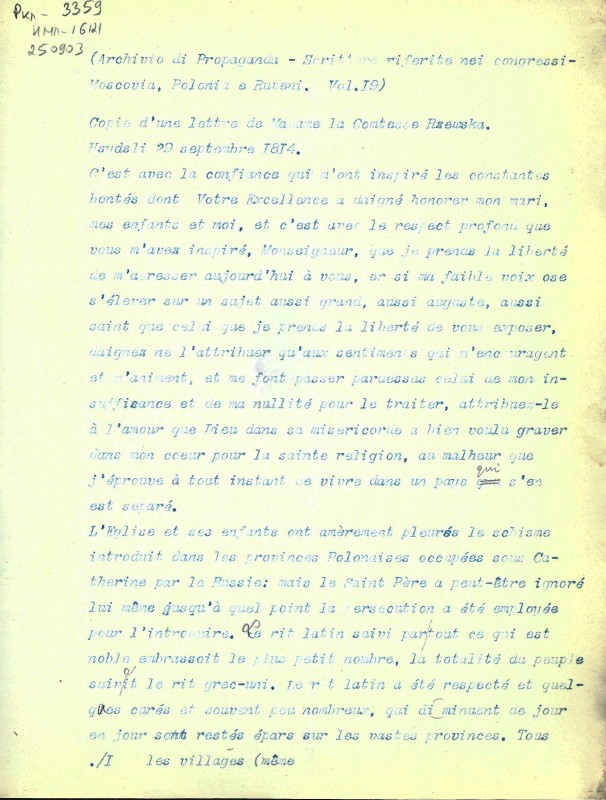 Ркп- 3359
ИМЛ-16121
250903
(Archivio di Propaganda - Scritture riferite nei congressi-
Moscovia, Polonia e Ruteni. Vol.I9)
Copie d'une lettre de Madame la Comtesse Rzewska.
29 septembre I8I4.
C'est avec la confiance qui m'ont inspiré les constantes
bontés dont Votre Excellence a daigné honorer mon mari,
mes enfants et moi, et c'est avec le respect profond que
vous m'avez inspiré, Monseigneur, que je prends la liberté
de m'adresser aujourd'hui à vous, er si ma faible voix ose
s'élever sur un sujet aussi grand, aussi auguste, aussi
saint que celui que je prends la liberté de vous exposer,
daignez ne l'attribuer qu'aux sentiments qui m'encouragent
et m'animent, et me font passer pardessus celui de mon in-
suffisance et de ma nullité pour le traiter, attribuez-le
à l'amour que Dieu dans sa misericorde a bien voulu graver
dans mon coeur pour la sainte religion, au malheur que
j'éprouve à tout instant de vivre dans un pays qui s'en
est separé.
L'Eglise et ses enfants ont amèrement pleurés le schisme
introduit dans les provinces Polonaises occupées sous Ca-
therine par la Russie: mais le Saint Père a peut-être ignoré
lui même jusqu'à quel point la persecution a été employée
pour l'introduire. Le rit latin suivi partout ce qui est
noble embrassoit le plus petit nombre, la totalité du peuple
suivoit le rit grec-uni. Le rit latin a été respecté et quel-
ques curés et souvent peu nombreux, qui diminuent de jour
en jour sont restés épars sur les vastes provinces. Tous
./I les villages (même